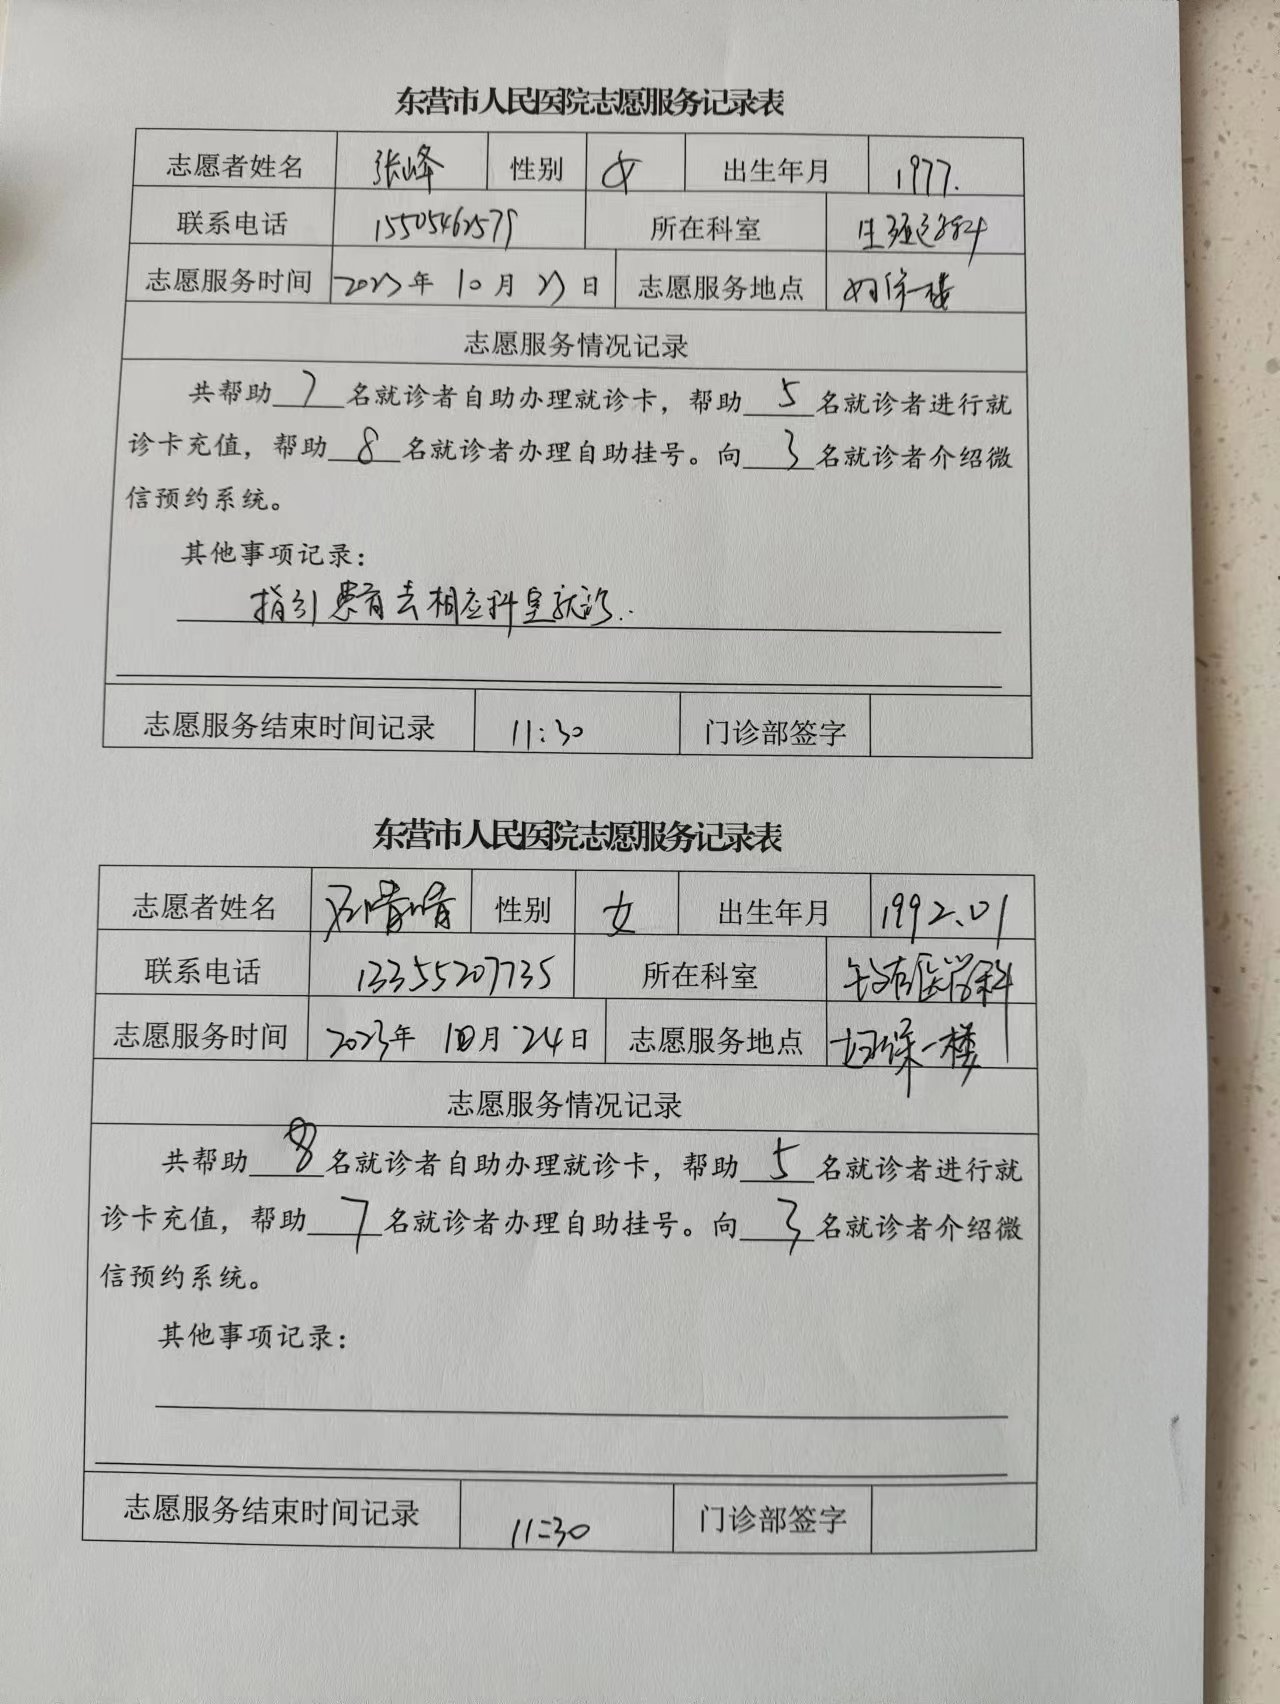 东营市人民医院志愿服务记录表
志愿者姓名 张峰 性别 女 出生年月 1977.
联系电话 15505462579 所在科室 生殖遗传科
志愿服务时间 2023年 10月 23日 志愿服务地点 妇保一楼
志愿服务情况记录
共帮助 7 名就诊者自助办理就诊卡，帮助 5 名就诊者进行就
诊卡充值，帮助 8 名就诊者办理自助挂号。向 3 名就诊者介绍微
信预约系统。
其他事项记录：
指引患者去相应科室就诊.
志愿服务结束时间记录 11:30 门诊部签字
东营市人民医院志愿服务记录表
志愿者姓名 性别 女 出生年月 1992.01
联系电话 13355207735 所在科室 生殖医学科
志愿服务时间 2023年 10月 24日 志愿服务地点 妇保一楼
志愿服务情况记录
共帮助 8 名就诊者自助办理就诊卡，帮助 5 名就诊者进行就
诊卡充值，帮助 7 名就诊者办理自助挂号。向 3 名就诊者介绍微
信预约系统。
其他事项记录：
志愿服务结束时间记录 11:30 门诊部签字